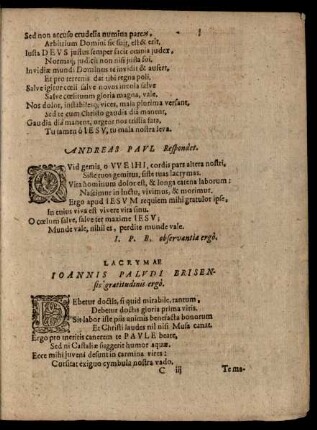 Sed non accuso crudelia numina parens,
Arbitrium Domini sic fuit, est & erit.
Iusta DEVS justus semper facit omnia judex,
Normatq; judicii non nisi justa sui.
Invidiæ mundi Dominus te invidit & aufert,
Et pro terrenis dat tibi regna poli.
Salve igitur cœli salve novus incola salve
Salve cœtituum gloria magna, vale.
Nos dolor, instabilesq; vices, mala plurima versant,
Sed te cum Christo gaudia dia manent,
Gaudia dia manent, urgent nos tristia fata,
Tu tamen ô IESV, tu mala nostra leva.
ANDREAS PAVL Respondet.
QVid gemis, o VVEIHI, cordis pars altera nostri,
Siste tuos gemitus, siste tuas lacrymas.
Vita hominum dolor est, & longa catena laborum:
Nascimur in luctu, vivimus, & morimur.
Ergo apud IESVM requiem mihi gratulor ipse,
In cuius viva est vivere vita sinu.
O cœlum salve, salve ter maxime IESV;
Munde vale, nihil es, perdite munde vale.
I. P. B. observantiæ ergò.
LACRYMAE
IOANNIS PALVDI BRISEN-
sis gratitudinis ergò.
DEbetur doctis, si quid mirabile, tantum,
Debetur doctis gloria prima viris.
Sic labor iste piis unius benefacta bonorum
Et Christi laudes nil nisi Musa canat.
Ergo pro meritis canerem te PAVLE beate,
Sed ni Castaliæ suggerit humor aquæ.
Ecce mihi Juveni desunt io carmina vires:
Cursitat exiguo cymbula nostra vado.
C iij
Te ma-